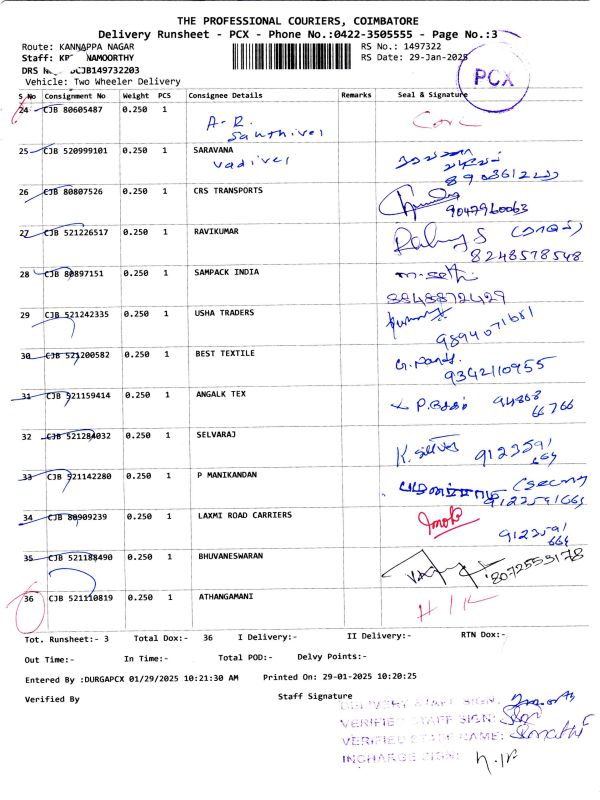 THE PROFESSIONAL COURIERS, COIMBATORE
Delivery Runsheet - PCX - Phone No.:0422-3505555 - Page No.:3
Route: KANNAPPA NAGAR
RS No.: 1497322
Staff: NAMOORTHY
RS Date: 29-Jan-2025
PCX
DRS CJB149732203
Vehicle: Two Wheeler Delivery
S No Consignment No Weight PCS Consignee Details Remarks Seal & Signature
24 CJB 80605487 0.250 1 A.R. Santhivel
25 CJB 520999101 0.250 1 SARAVANA
vadivel
26 CJB 80807526 0.250 1 CRS TRANSPORTS
9047960063
27 CJB 521226517 0.250 1 RAVIKUMAR
8248578548
28 CJB 80897151 0.250 1 SAMPACK INDIA
29 CJB 521242335 0.250 1 USHA TRADERS
9894071681
30 CJB 521200582 0.250 1 BEST TEXTILE
9362110955
31 CJB 521159414 0.250 1 ANGALK TEX 94868
66766
32 CJB 521284032 0.250 1 SELVARAJ
9123591
664
33 CJB 521142280 0.250 1 P MANIKANDAN
9122591664
34 CJB 80909239 0.250 1 LAXMI ROAD CARRIERS
9123591
664
35 CJB 521188490 0.250 1 BHUVANESWARAN
8072553178
36 CJB 521110819 0.250 1 ATHANGAMANI
Tot. Runsheet:- 3 Total Dox:- 36 I Delivery:- II Delivery:- RTN Dox:-
Out Time:- In Time:- Total POD:- Delvy Points:-
Entered By :DURGAPCX 01/29/2025 10:21:30 AM Printed On: 29-01-2025 10:20:25
Verified By Staff Signature
DELIVERY STAFF SIGN:
VERIFIED STAFF SIGN:
VERIFIED STAFF NAME:
INCHARGE SIGN: